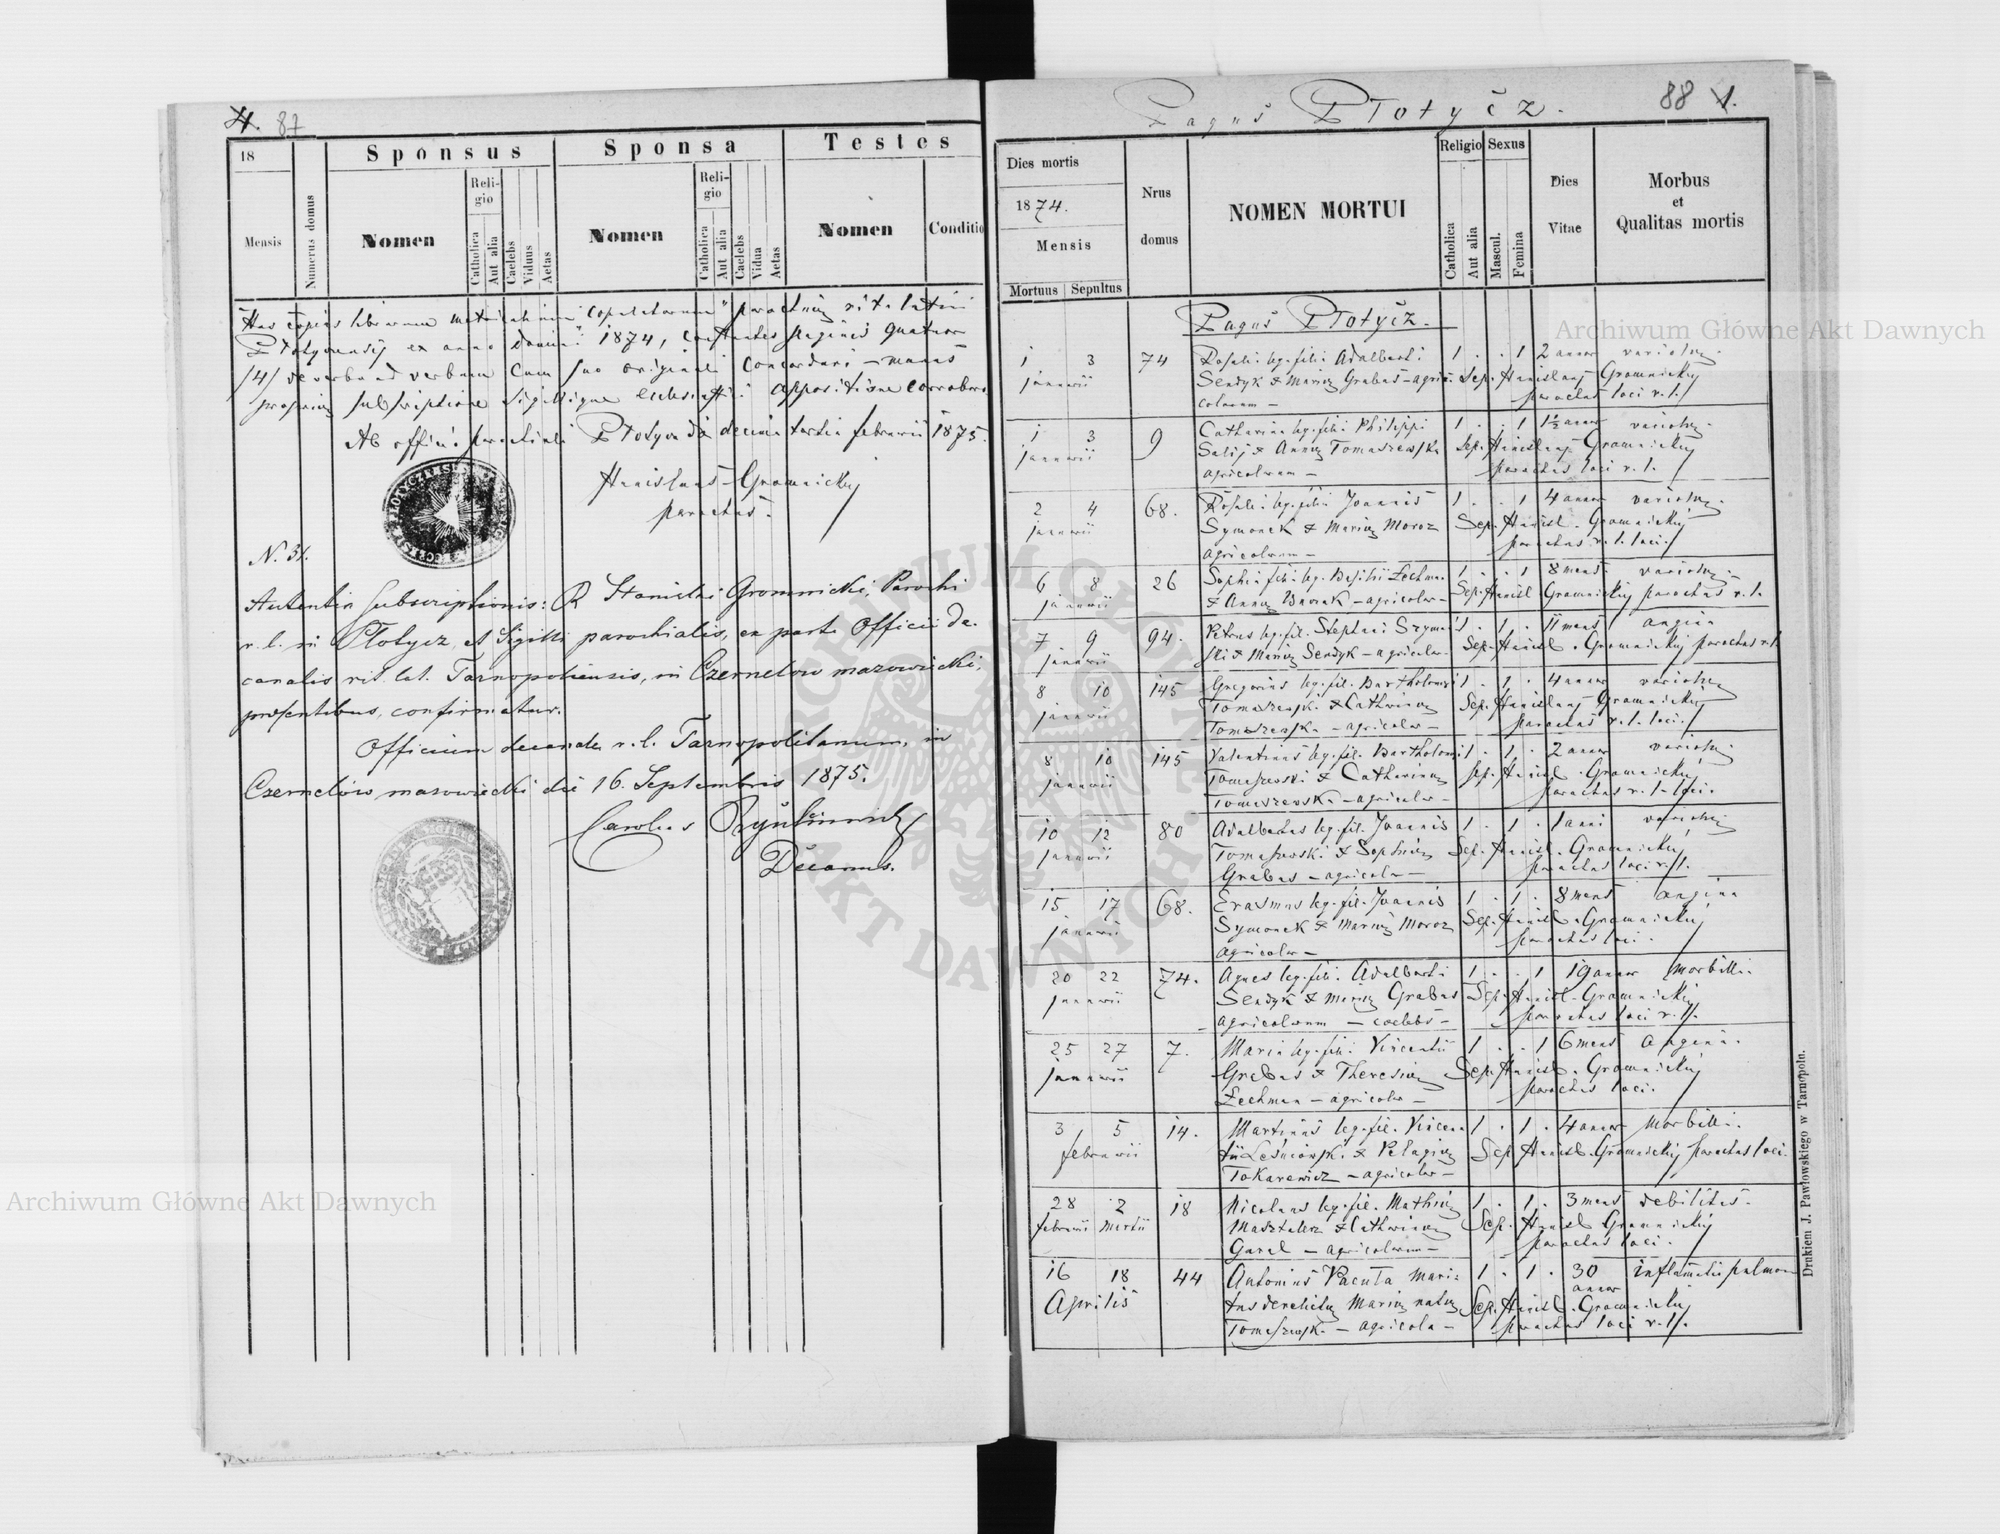 4. 87
18
Sponsus
Sponsa
Testes
Mensis
Numerus domus
Nomen
Religio
Catholica
Aut alia
Caelebs
Viduus
Aetas
Nomen
Religio
Catholica
Aut alia
Caelebs
Vidua
Aetas
Nomen
Conditio
Has copias librorum metricalium "Copulatorum" parochiae rit. latini
Płotycensis ex anno domini 1874, constantes paginis quatuor
/4/ de verbo ad verbum cum suo originali concordari – manus
propriae subscriptione sigillique ecclesiastici appositione corrobor
Ab officio parochiali Płotycz die decima tertia februarii 1875.
Stanislaus Gromnicki
parochus.
N. 31.
Autentia subscriptionis: R. Stanislai Gromnicki, Parochi
r. l. in Płotycz, et Sigilli parochialis, ex parte Officii de-
canalis rit. lat. Tarnopoliensis, in Czernelow mazowiecki,
praesentibus, confirmatur.
Officium decanale r. l. Tarnopolitanum, in
Czernelów mazowiecki die 16. Septembris 1875.
Carolus
Decanus.
Pagus Płotycz.
88 1.
Dies mortis
1874.
Mensis
Mortuus
Sepultus
Nrus
domus
NOMEN MORTUI
Religio
Catholica
Aut alia
Sexus
Mascul.
Femina
Dies
Vitae
Morbus
et
Qualitas mortis
Pagus Płotycz.
1 3 74 Rosalia leg. filia Adalberti 1 . . 1 2 annor variolae.
januarii Sendyk & Mariae Grabas – agri- Sep. Stanislaus Gromnicki
colarum – parochus loci r. l.
1 3 9 Catharina leg. filia Philippi 1 . . 1 1½ annor variolae.
januarii Salij & Annae Tomaszewska Sep. Stanislaus Gromnicki
agricolarum – parochus loci r. l.
2 4 68. Rosalia leg. filia Joannis 1 . . 1 4 annor variolae.
januarii Symonek & Mariae Moroz Sep. Stanisl. Gromnicki
agricolarum – parochus r. l. loci.
6 8 26 Sophia filia leg. Basilii Łechman 1 . . 1 8 mens. variolae.
januarii & Annae – agricolar – Sep. Stanisl. Gromnicki parochus r. l.
7 9 94. Petrus leg. fil. Stephani Szymań- 1 . 1 . 11 mens angina
januarii ski & Mariae Sendyk – agricolar – Sep. Stanisl. Gromnicki parochus r. l.
8 10 145 Gregorius leg. fil. Bartholomei 1 . 1 . 4 annor variolae
januarii Tomaszewski & Catharinae Sep. Stanislaus Gromnicki
Tomaszewska – agricolar – parochus r. l. loci.
8 10 145 Valentinus leg. fil. Bartholomei 1 . 1 . 2 annor variolae
januarii Tomaszewski & Catharinae Sep. Stanisl. Gromnicki
Tomaszewska – agricolar – parochus r. l. loci.
10 12 80 Adalbertus leg. fil. Joannis 1 . 1 . 1 anni variolae
januarii Tomaszewski & Sophiae Sep. Stanisl. Gromnicki
Grabas – agricolar – parochus loci r. l.
15 17 68. Erasmus leg. fil. Joannis 1 . 1 . 8 mens angina
januarii Symonek & Mariae Moroz Sep. Stanisl. Gromnicki
agricolar – parochus loci.
20 22 74. Agnes leg. filia Adalberti 1 . . 1 19 annor morbilli.
januarii Sendyk & Mariae Grabas Sep. Stanisl. Gromnicki
agricolarum – coelebs – parochus loci r. l.
25 27 7. Maria leg. filia Vincentii 1 . . 1 6 mens angina.
januarii Grabas & Theresiae Sep. Stanisl. Gromnicki
Łechman – agricolar – parochus loci.
3 5 14. Martinus leg. fil. Vincen- 1 . 1 . 4 annor morbilli.
februarii tii Leśniowski & Pelagiae Sep. Stanisl. Gromnicki parochus loci.
Tokarewicz – agricolar –
28 2 18 Nicolaus leg. fil. Mathiae 1 . 1 . 3 mens debilitas.
februarii Martii Masztalerz & Catharinae Sep. Stanisl. Gromnicki
Garel – agricolarum – parochus loci.
16 18 44 Antonius Pacuła mari- 1 . 1 . 30 inflamatio pulmon
annor
Aprilis tus derelictae Mariae natae Sep. Stanisl. Gromnicki
Tomaszewska – agricola – parochus loci r. l.
Drukiem J. Pawłowskiego w Tarnopolu.
Archiwum Główne Akt Dawnych
Archiwum Główne Akt Dawnych
ARCHIWUM GŁÓWNE AKT DAWNYCH